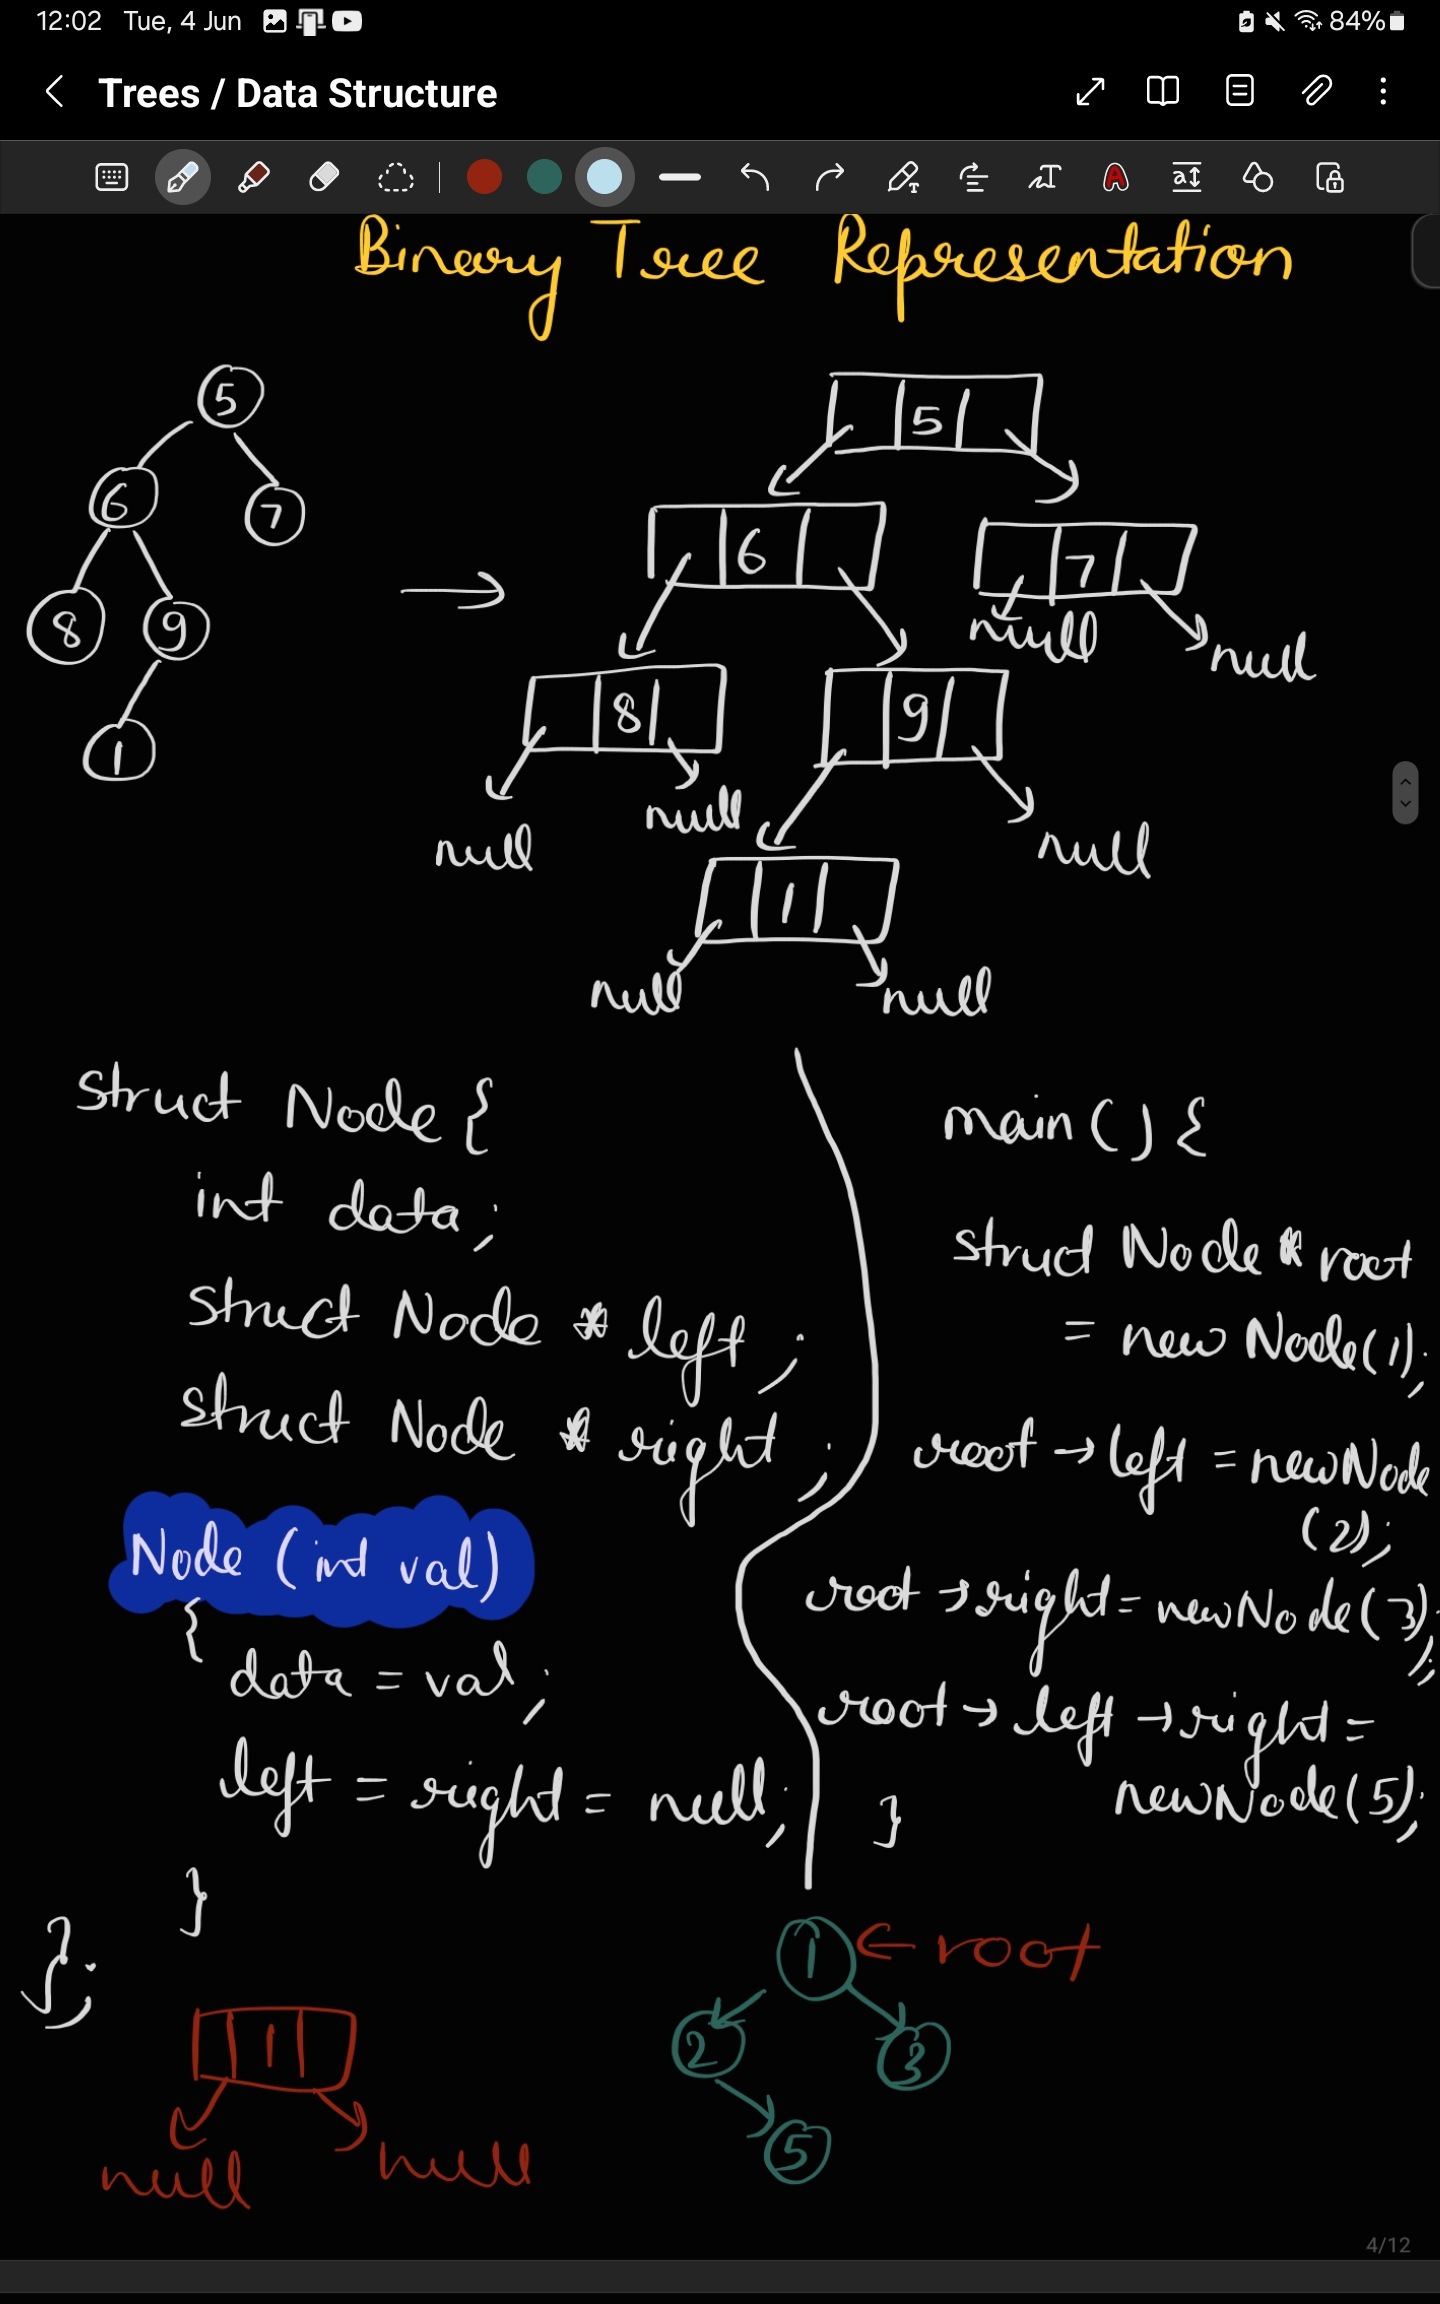 12:02 Tue, 4 Jun 84%
Trees / Data Structure
Binary Tree Representation
5
6 7
8 9
1
5
6 7
null null
8 9
null null null
1
null null
struct Node {
int data;
struct Node * left;
struct Node * right;
Node (int val)
{
data = val;
left = right = null;
}
};
main() {
struct Node * root
= new Node(1);
root → left = new Node
(2);
root → right = new Node(3);
root → left → right =
new Node(5);
}
1
null null
1 ← root
2 3
5
4/12